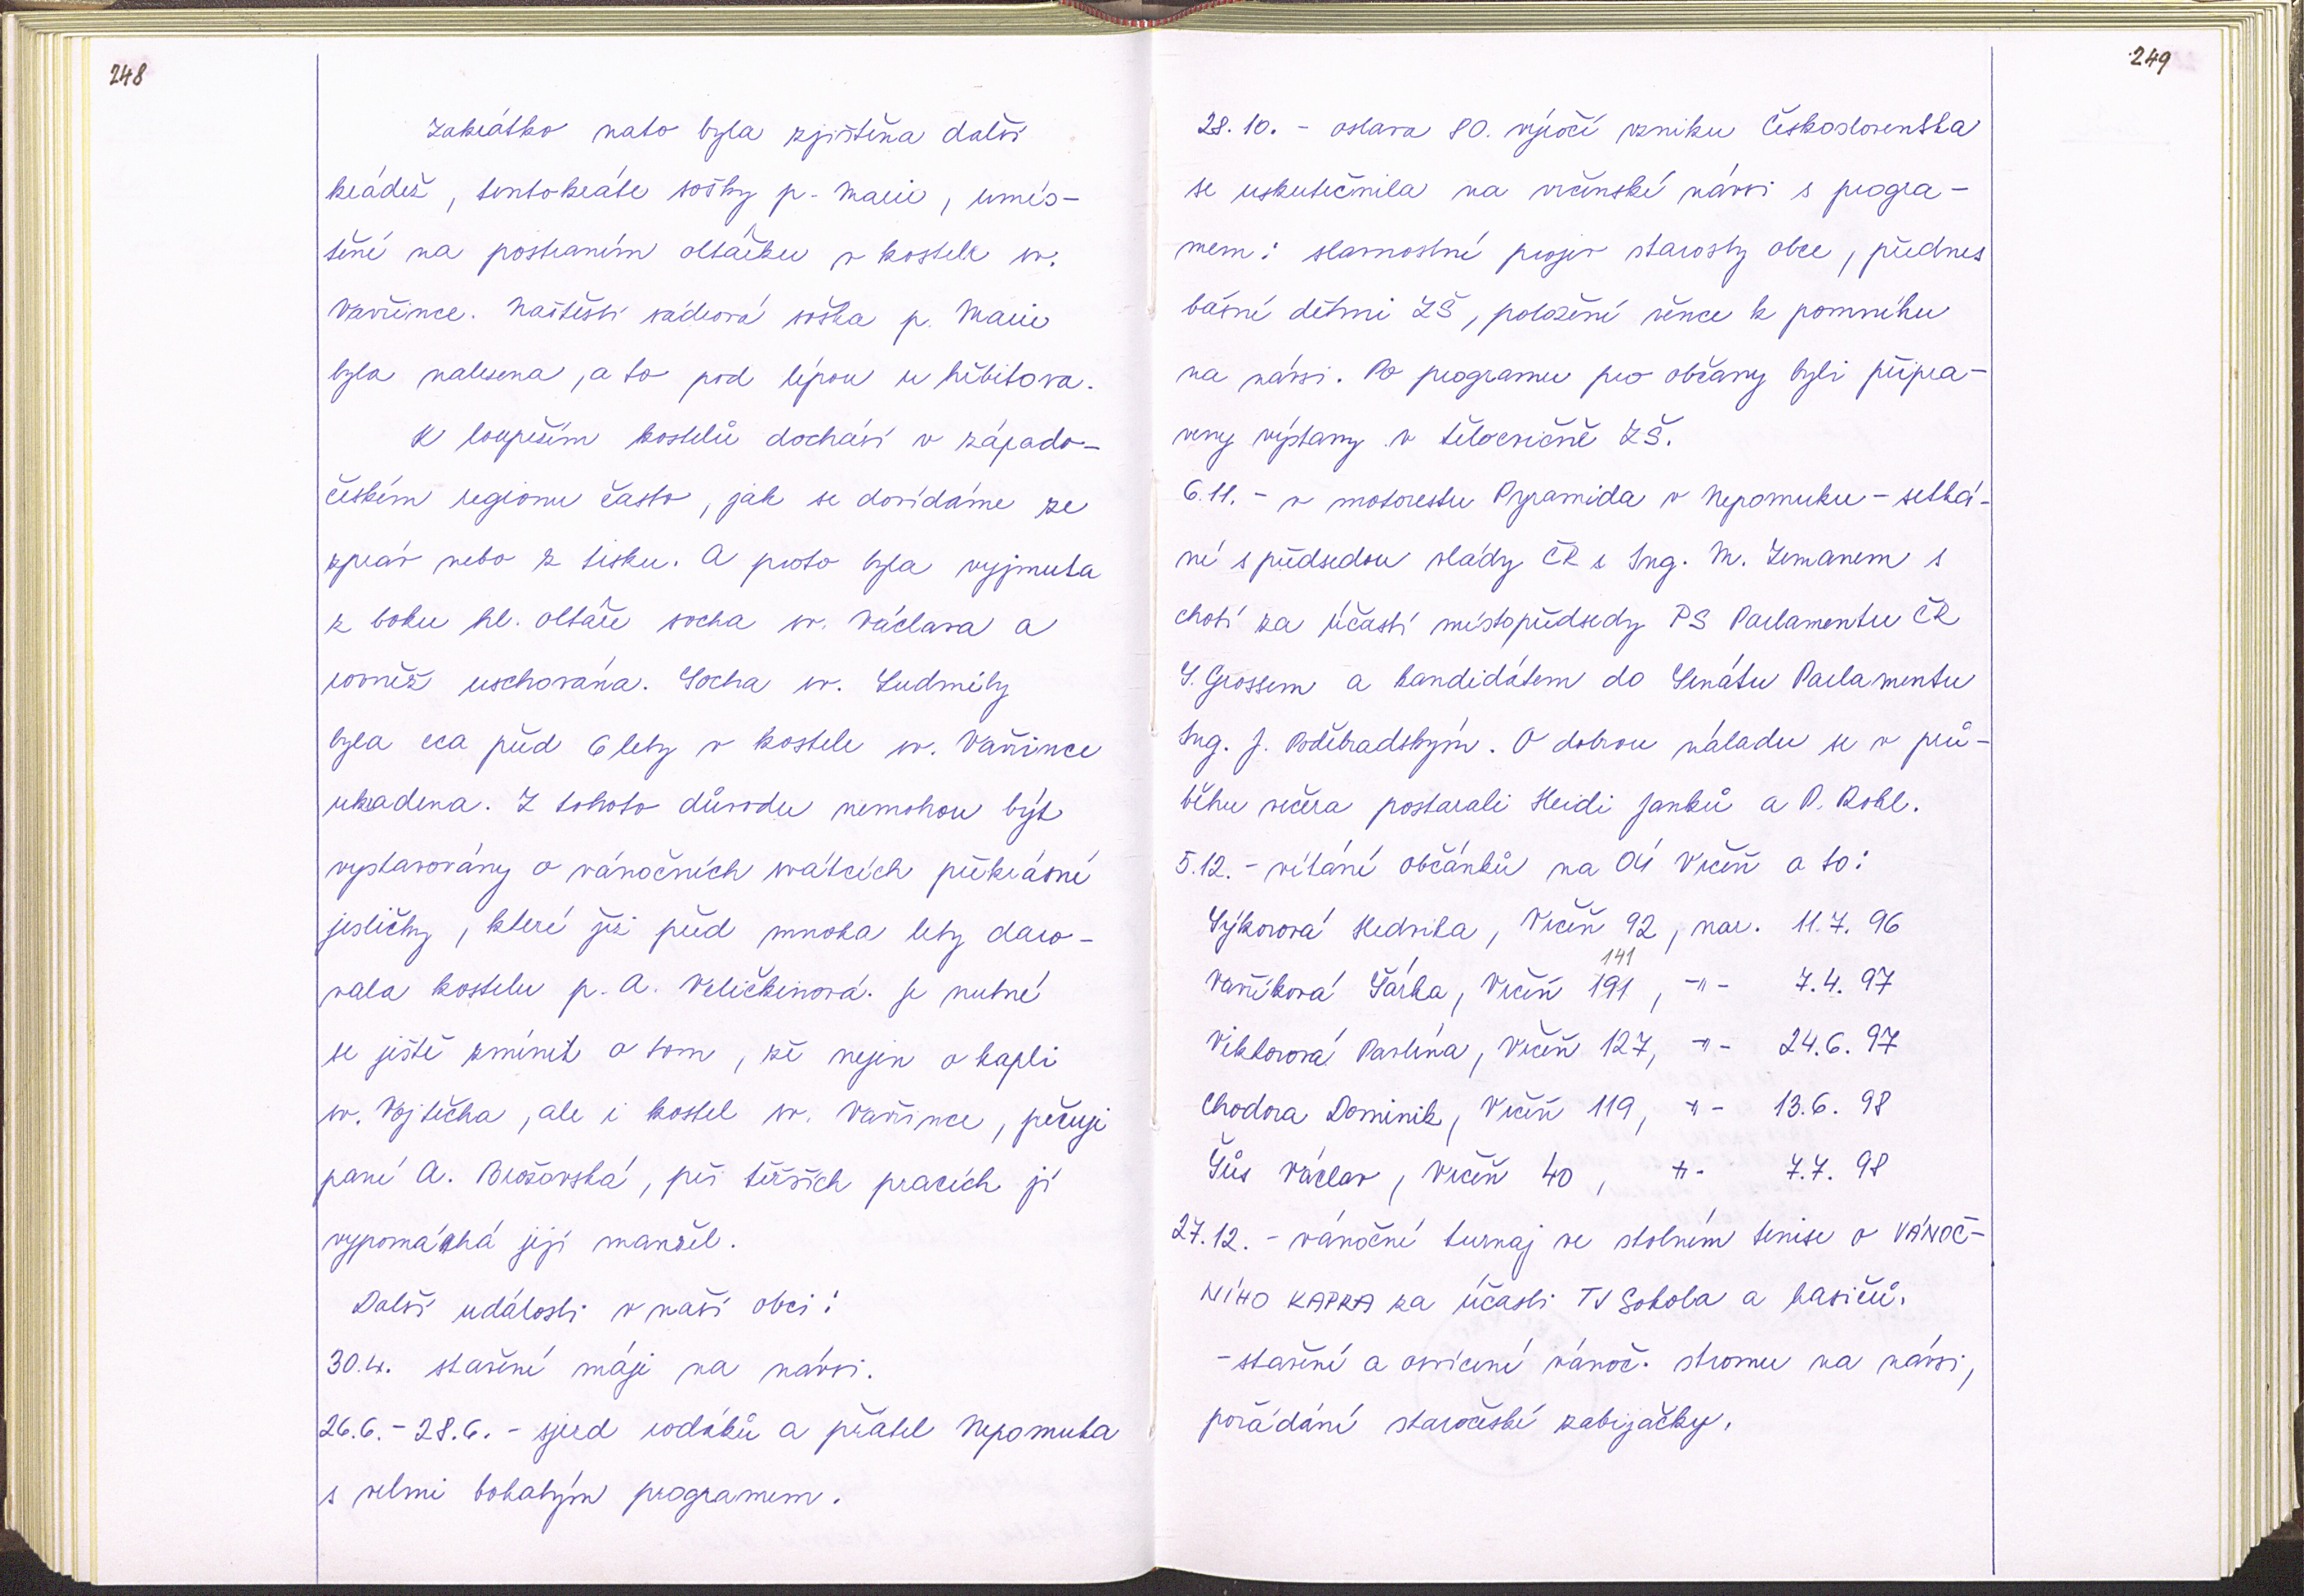 248
Zakrátko nato byla zjištěna další
krádež, tentokráte sošky p. Marie, umís-
těné na postraním oltáříku v kostele sv.
Vavřince. Naštěstí sádrová soška p. Marie
byla nalezena, a to pod lípou u hřbitova.
K loupežím kostelů dochází v západo-
českém regionu často, jak se dovídáme ze
zpráv nebo z tisku. A proto byla vyjmuta
z boku hl. oltáře socha sv. Václava a
rovněž uschována. Socha sv. Ludmily
byla cca před 6 lety v kostele sv. Vavřince
ukradena. Z tohoto důvodu nemohou být
vystavovány o vánočních svátcích překrásné
jesličky, které již před mnoha lety daro-
vala kostelu p. A. Veličkinová. Je nutné
se ještě zmínit o tom, že nejen o kapli
sv. Vojtěcha, ale i kostel sv. Vavřince, pečuje
paní A. Brožovská, při těžších pracích jí
vypomáhá její manžel.
Další události v naší obci:
30.4. stavění máje na návsi.
26.6.-28.6. - sjezd rodáků a přátel Nepomuka
s velmi bohatým programem.
249
28.10. - oslava 80. výročí vzniku Československa
se uskutečnila na vrčenské návsi s progra-
mem: slavnostní projev starosty obce, přednes
básní dětmi ZŠ, položení věnce k pomníku
na návsi. Po programu pro občany byli připra-
veny výstavy v tělocvičně ZŠ.
6.11. - v motorestu Pyramida v Nepomuku - setká-
ní s předsedou vlády ČR s Ing. M. Zemanem s
chotí za účasti místopředsedy PS Parlamentu ČR
S. Grossem a kandidátem do Senátu Parlamentu
Ing. J. Poděbradským. O dobrou náladu se v prů-
běhu večera postarali Heidi Janků a P. Rohl.
5.12. - vítání občánků na OÚ Vrčeň a to:
Sýkorová Hedvika, Vrčeň 92, nar. 11.7. 96
141
Vavříková Šárka, Vrčeň 191, -"- 7.4. 97
Viktorová Pavlína, Vrčeň 127, -"- 24.6. 97
Chodora Dominik, Vrčeň 119, -"- 13.6. 98
Šůs Václav, Vrčeň 40, -"- 7.7. 98
27.12. - vánoční turnaj ve stolním tenise o VÁNOČ-
NÍHO KAPRA za účasti TJ Sokola a hasičů.
- stavění a osvícení vánoč. stromu na návsi,
pořádání staročeské zabijačky.